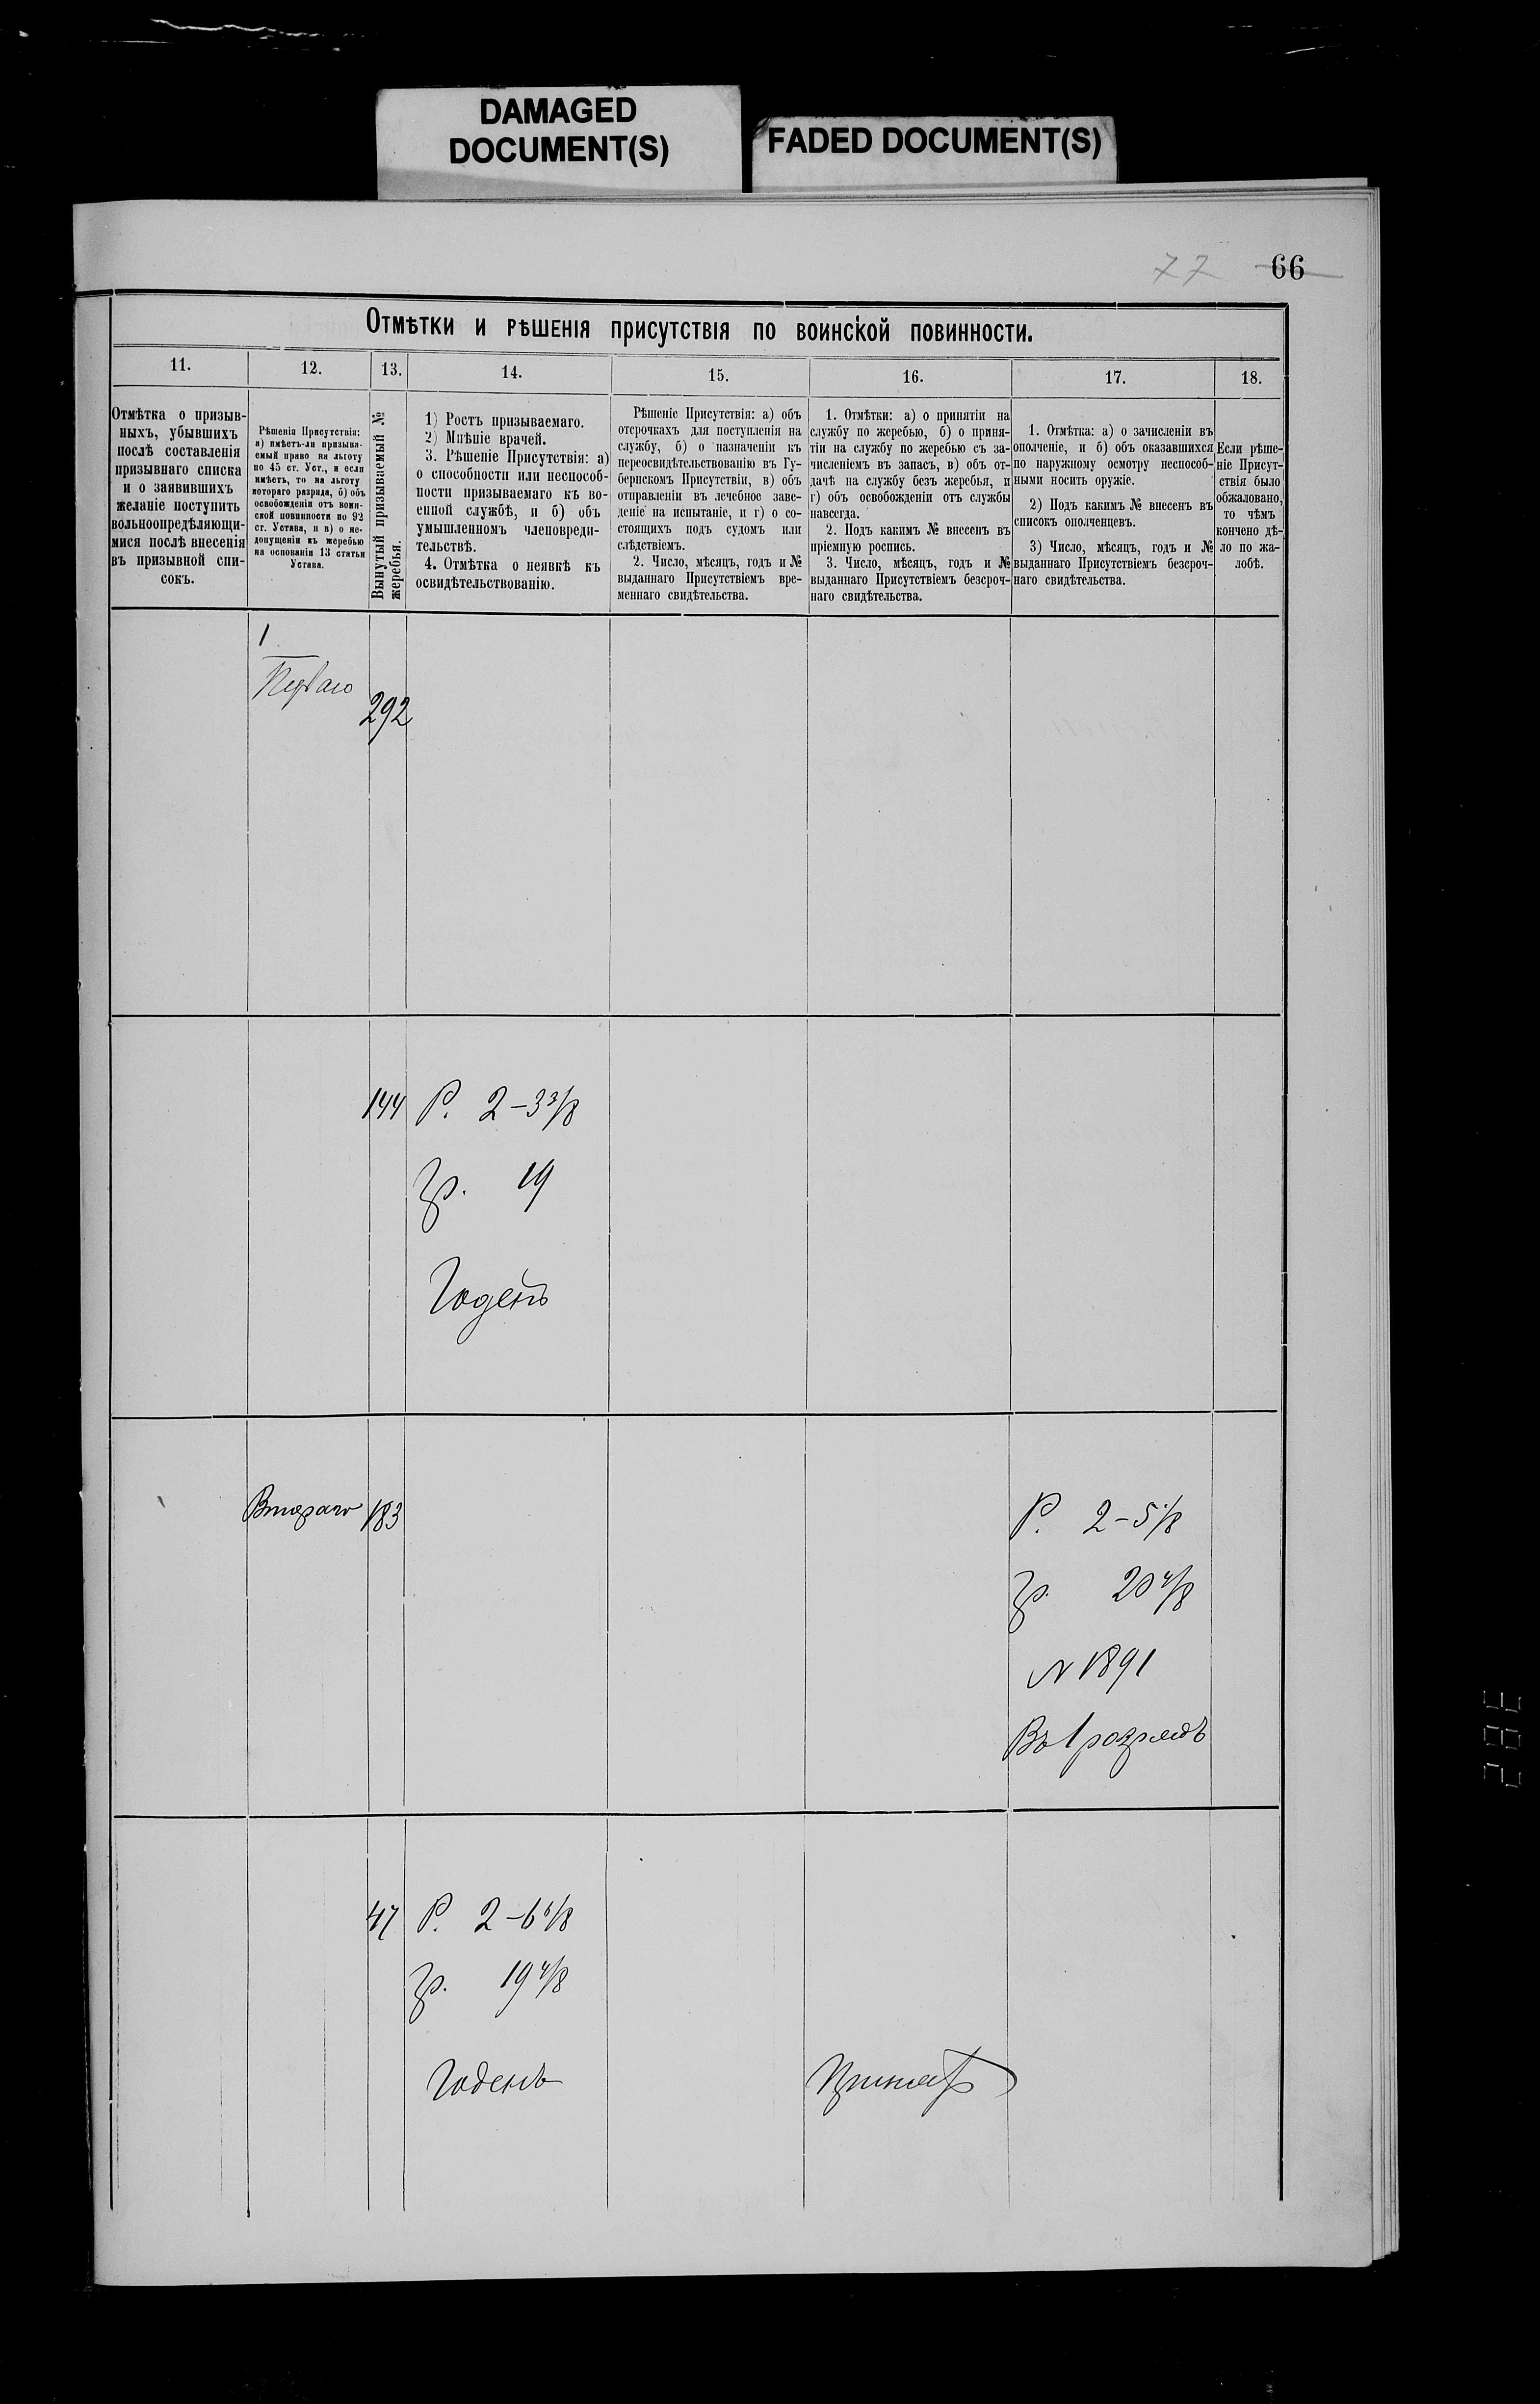 DAMAGED
DOCUMENT(S)
FADED DOCUMENT(S)
77 66
Отмѣтки и рѣшенія присутствія по воинской повинности.
11.
12.
13.
14.
15.
16.
17.
18.
Отмѣтка о призыв-
ныхъ, убывшихъ
послѣ составленія
призывнаго списка
и о заявившихъ
желаніе поступить
вольноопредѣляющи-
мися послѣ внесенія
въ призывной спи-
сокъ.
Рѣшенія Присутствія:
а) имѣетъ-ли призыва-
емый право на льготу
по 45 ст. Уст., и если
имѣетъ, то на льготу
котораго разряда, б) объ
освобожденіи отъ воин-
ской повинности по 92
ст. Устава, и в) о не-
допущеніи къ жеребью
на основаніи 13 статьи
Устава.
Вынутый призываемый №
жеребья.
1) Ростъ призываемаго.
2) Мнѣніе врачей.
3. Рѣшеніе Присутствія: а)
о способности или неспособ-
ности призываемаго къ во-
енной службѣ, и б) объ
умышленномъ членовреди-
тельствѣ.
4. Отмѣтка о неявкѣ къ
освидѣтельствованію.
Рѣшеніе Присутствія: а) объ
отсрочкахъ для поступленія на
службу, б) о назначеніи къ
переосвидѣтельствованію въ Гу-
бернскомъ Присутствіи, в) объ
отправленіи въ лечебное заве-
деніе на испытаніе, и г) о со-
стоящихъ подъ судомъ или
слѣдствіемъ.
2. Число, мѣсяцъ, годъ и №
выданнаго Присутствіемъ вре-
меннаго свидѣтельства.
1. Отмѣтки: а) о принятіи на
службу по жеребью, б) о приня-
тіи на службу по жеребью съ за-
численіемъ въ запасъ, в) объ от-
дачѣ на службу безъ жеребья, и
г) объ освобожденіи отъ службы
навсегда.
2. Подъ какимъ № внесенъ въ
пріемную роспись.
3. Число, мѣсяцъ, годъ и №
выданнаго Присутствіемъ безсроч-
наго свидѣтельства.
1. Отмѣтка: а) о зачисленіи въ
ополченіе, и б) объ оказавшихся
по наружному осмотру неспособ-
ными носить оружіе.
2) Подъ какимъ № внесенъ въ
списокъ ополченцевъ.
3) Число, мѣсяцъ, годъ и №
выданнаго Присутствіемъ безсроч-
наго свидѣтельства.
Если рѣше-
ніе Присут-
ствія было
обжаловано,
то чѣмъ
кончено дѣ-
ло по жа-
лобѣ.
1
Перваго
292
144 Р. 2–3 3/8
Гр. 19
Годенъ
Втораго 183
Р. 2–5 1/8
Гр. 20 4/8
N 1891
Въ 1 разрядъ
47 Р. 2–6 6/8
Гр. 19 4/8
Годенъ
Принятъ
382